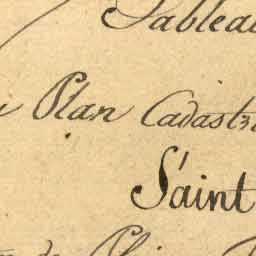 Tableau
Plan Cadastr
Saint